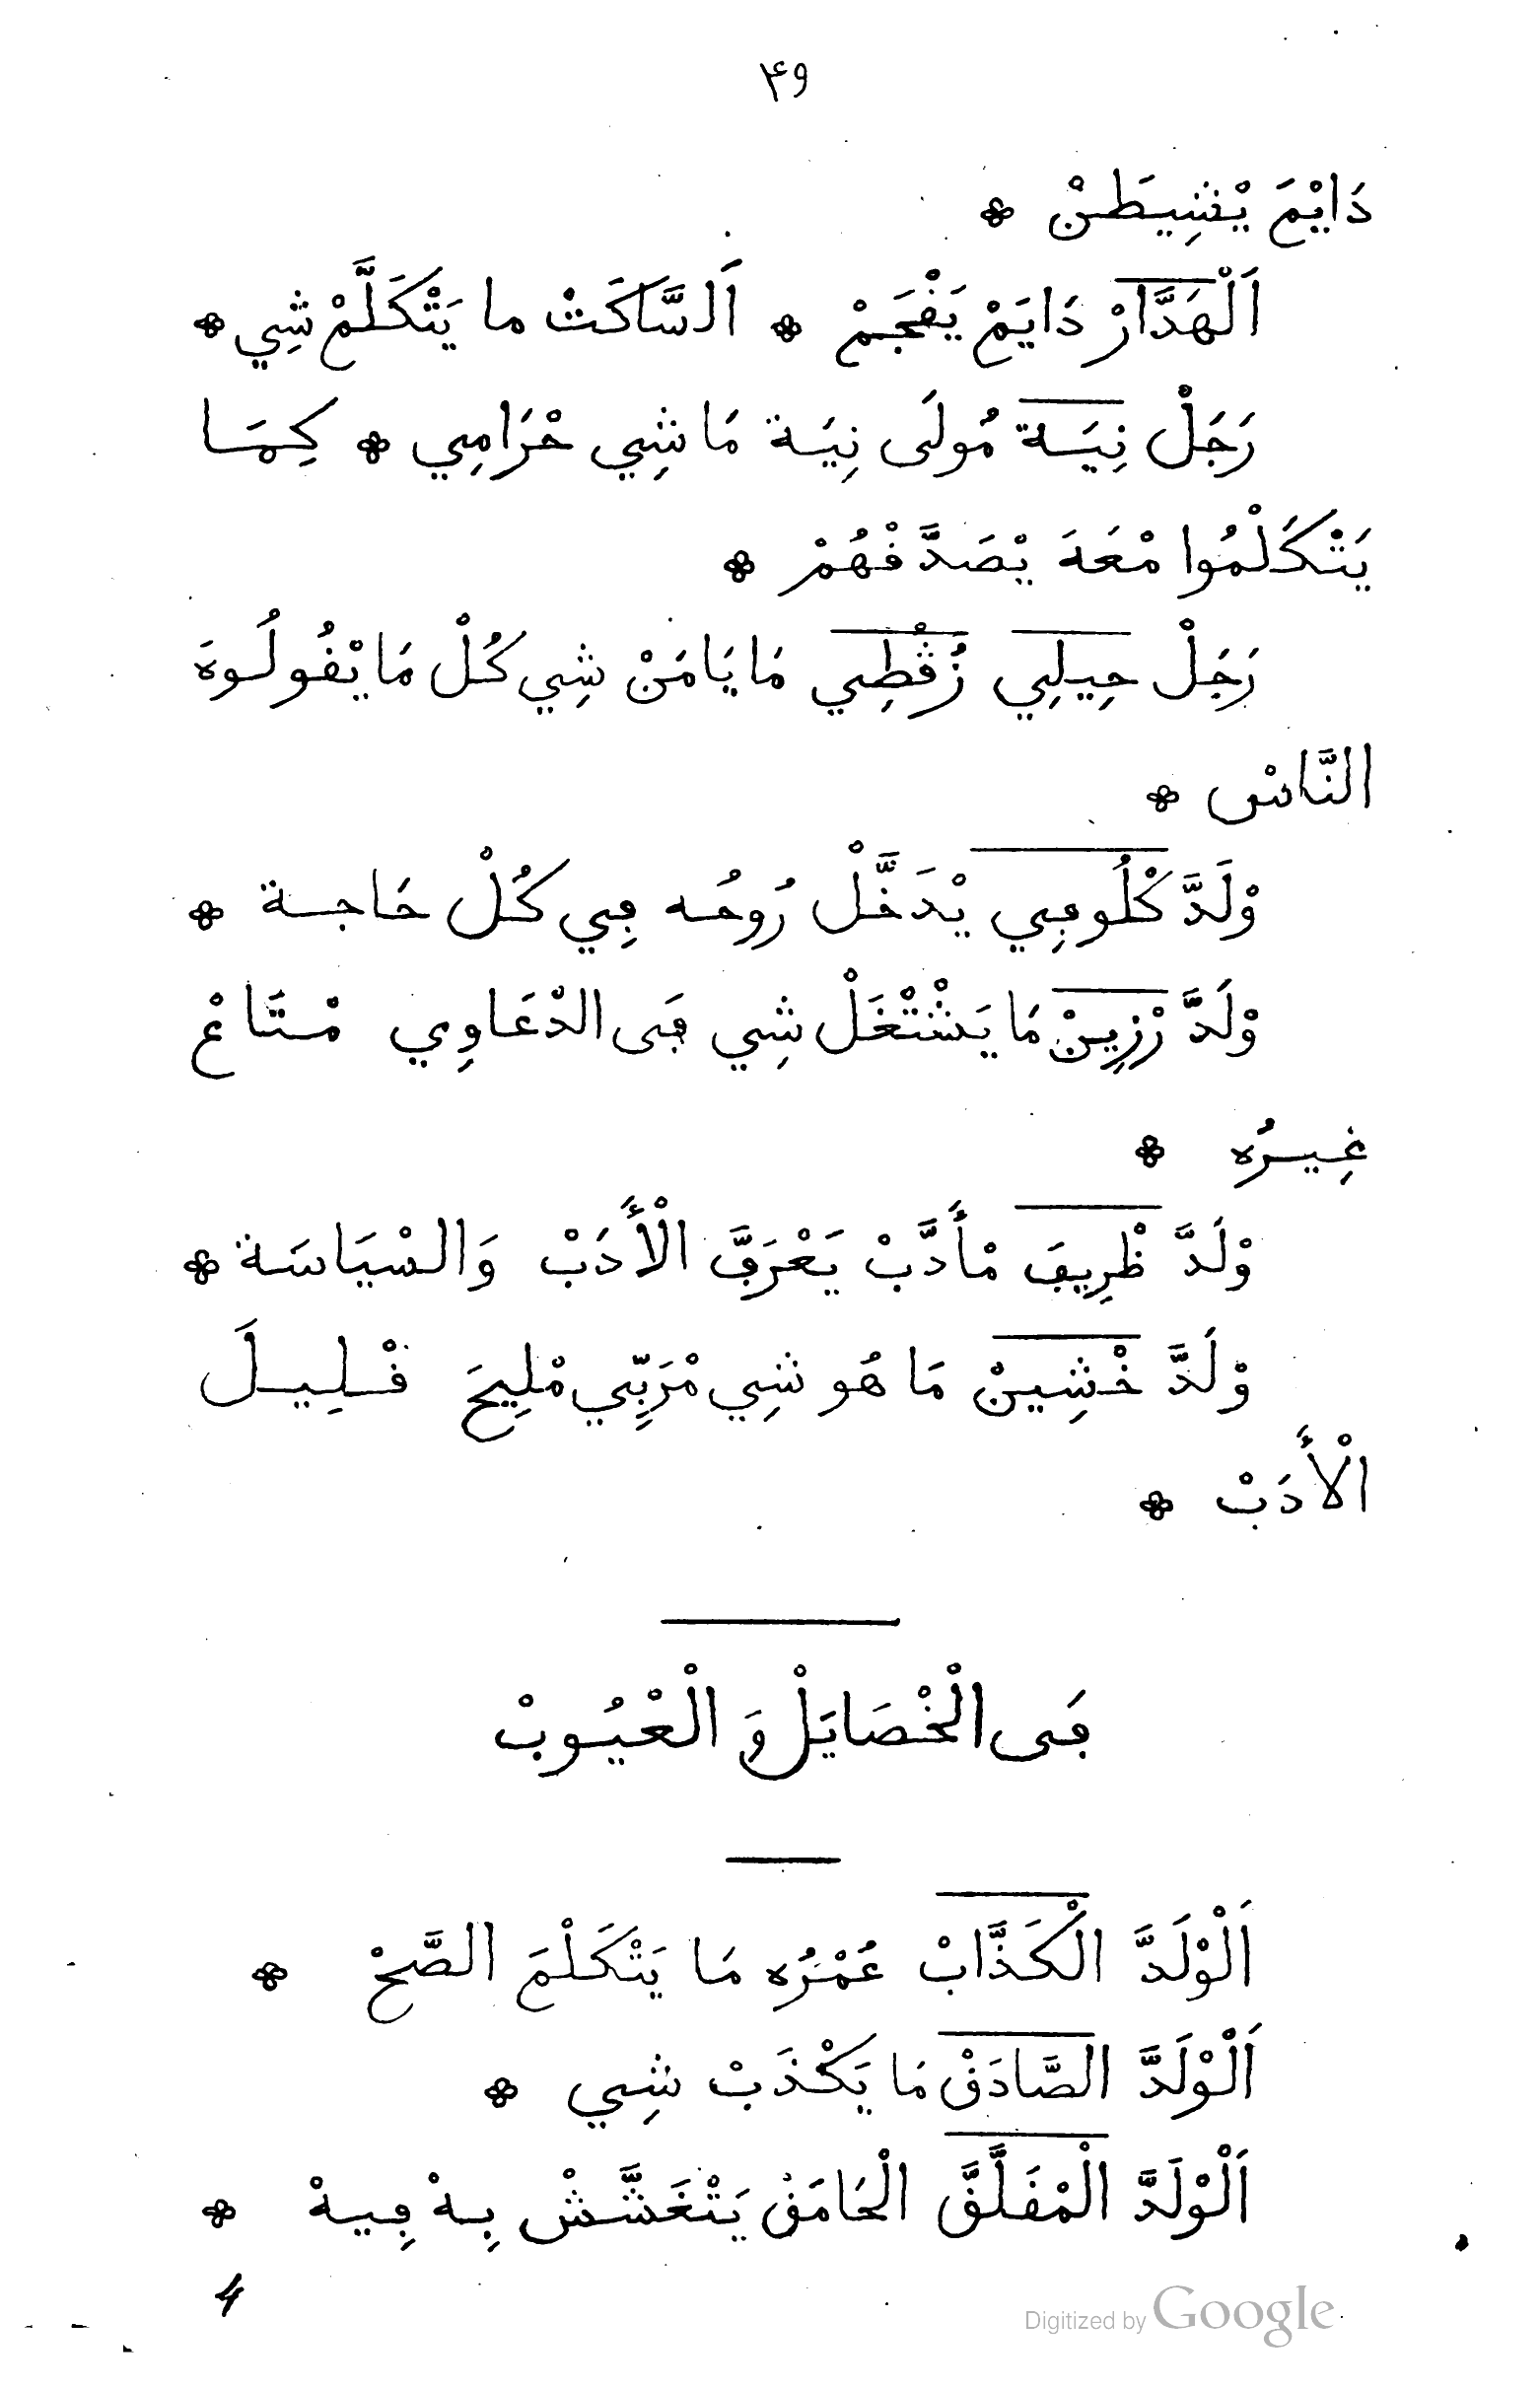 ۴۹
دَايْمَ يْشِيطَنْ *
اَلْهَدَّارْ دَايَمْ يَڢْجَمْ * اَلسَّاكَتْ ما يَتْكَلَّمْ شِي *
رَجَلْ نِيَة مُولَى نِيَة مَا شِي حْرَامِي * كِمَا
يَتْكَلْمُوا مْعَهَ يْصَدَّفْهُمْ *
رَجَلْ حِيلِي زُڨْطِي مَا يَامَنْ شِي كُلْ مَا يْفُولُوهَ
النَّاسْ *
وْلَدَّ كْلُوڢِي يْدَخَّلْ رُوحُه ڢِي كُلْ حَاجة *
وْلَدَّ رْزِينْ مَا يَشْتْغَلْ شِي ڢَى الدْعَاوِي مْتَاعْ
غِيرُه *
وْلَدَّ ظْرِيڢَ مْأَدَّبْ يَعْرَڢَّ الْأَدَبْ وَالسْيَاسَة *
وْلَدَّ خْشِينْ مَا هُو شِي مْرَبِّي مْلِيحَ فْلِيلَ
الْأَدَبْ *
ڢَى الْخْصَايَلْ وَ الْعْيُوبْ
اَلْوْلَدَّ الْكَذَّابْ عُمْرُه مَا يَتْكَلْمَ الصَّحْ *
اَلْوْلَدَّ الصَّادَفْ مَا يَكْذَبْ شِي *
اَلْوْلَدَّ الْمْفَلَّقَّ الْحَامَفْ يَتْغَشَّشْ بِهْ ڢِيهْ *
4
Digitized by Google